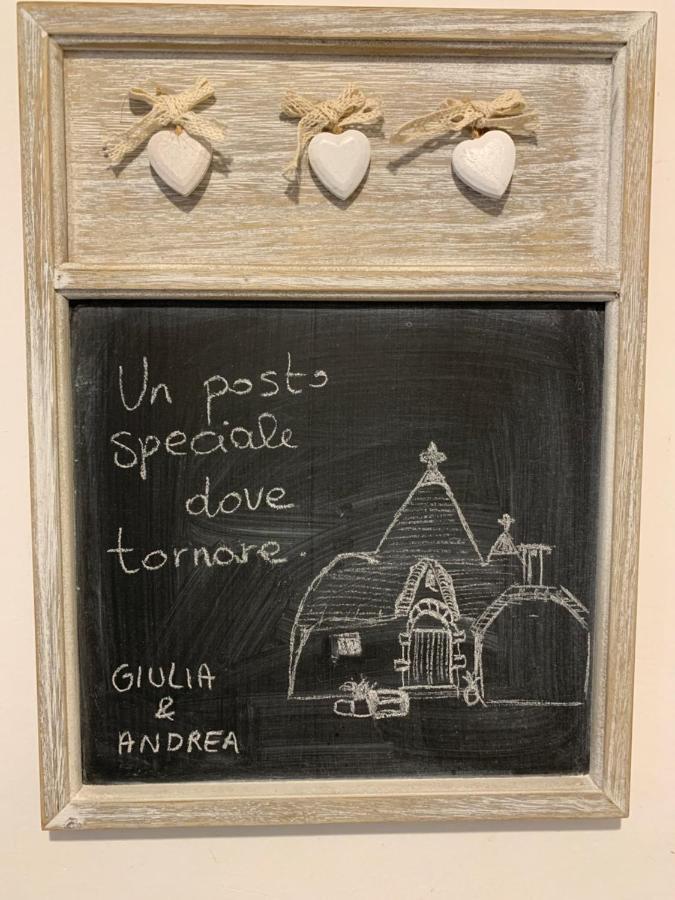 Un posto
speciale
dove
tornare.
GIULIA
&
ANDREA